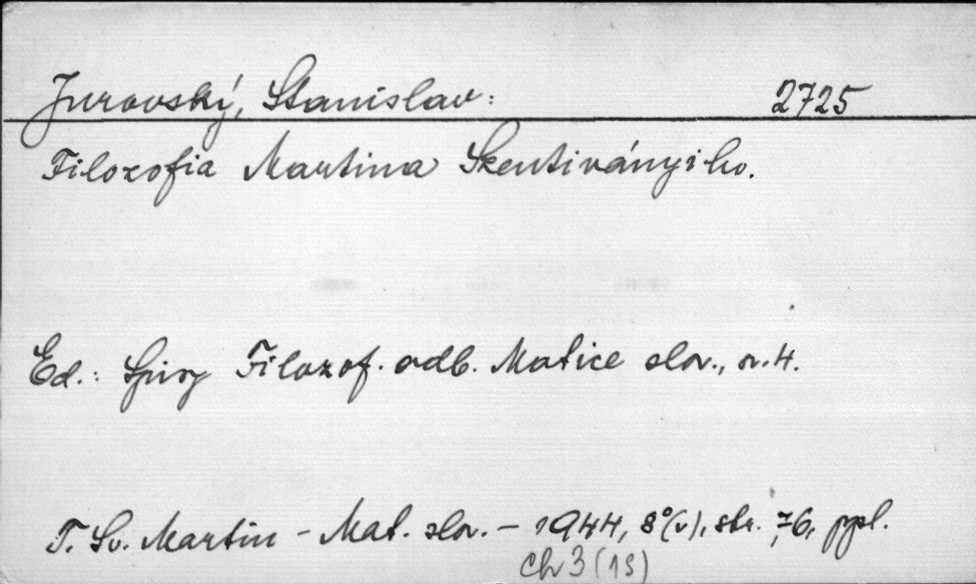 Jurovský, Stanislav: 2725
Filozofia Martina Szentiványiho.
Ed.: Spisy Filozof. odb. Matice slov., sv. 4.
T. Sv. Martin - Mat. slov. - 1944, 8°(v), str. 76, ppl.
ch 3 (13)